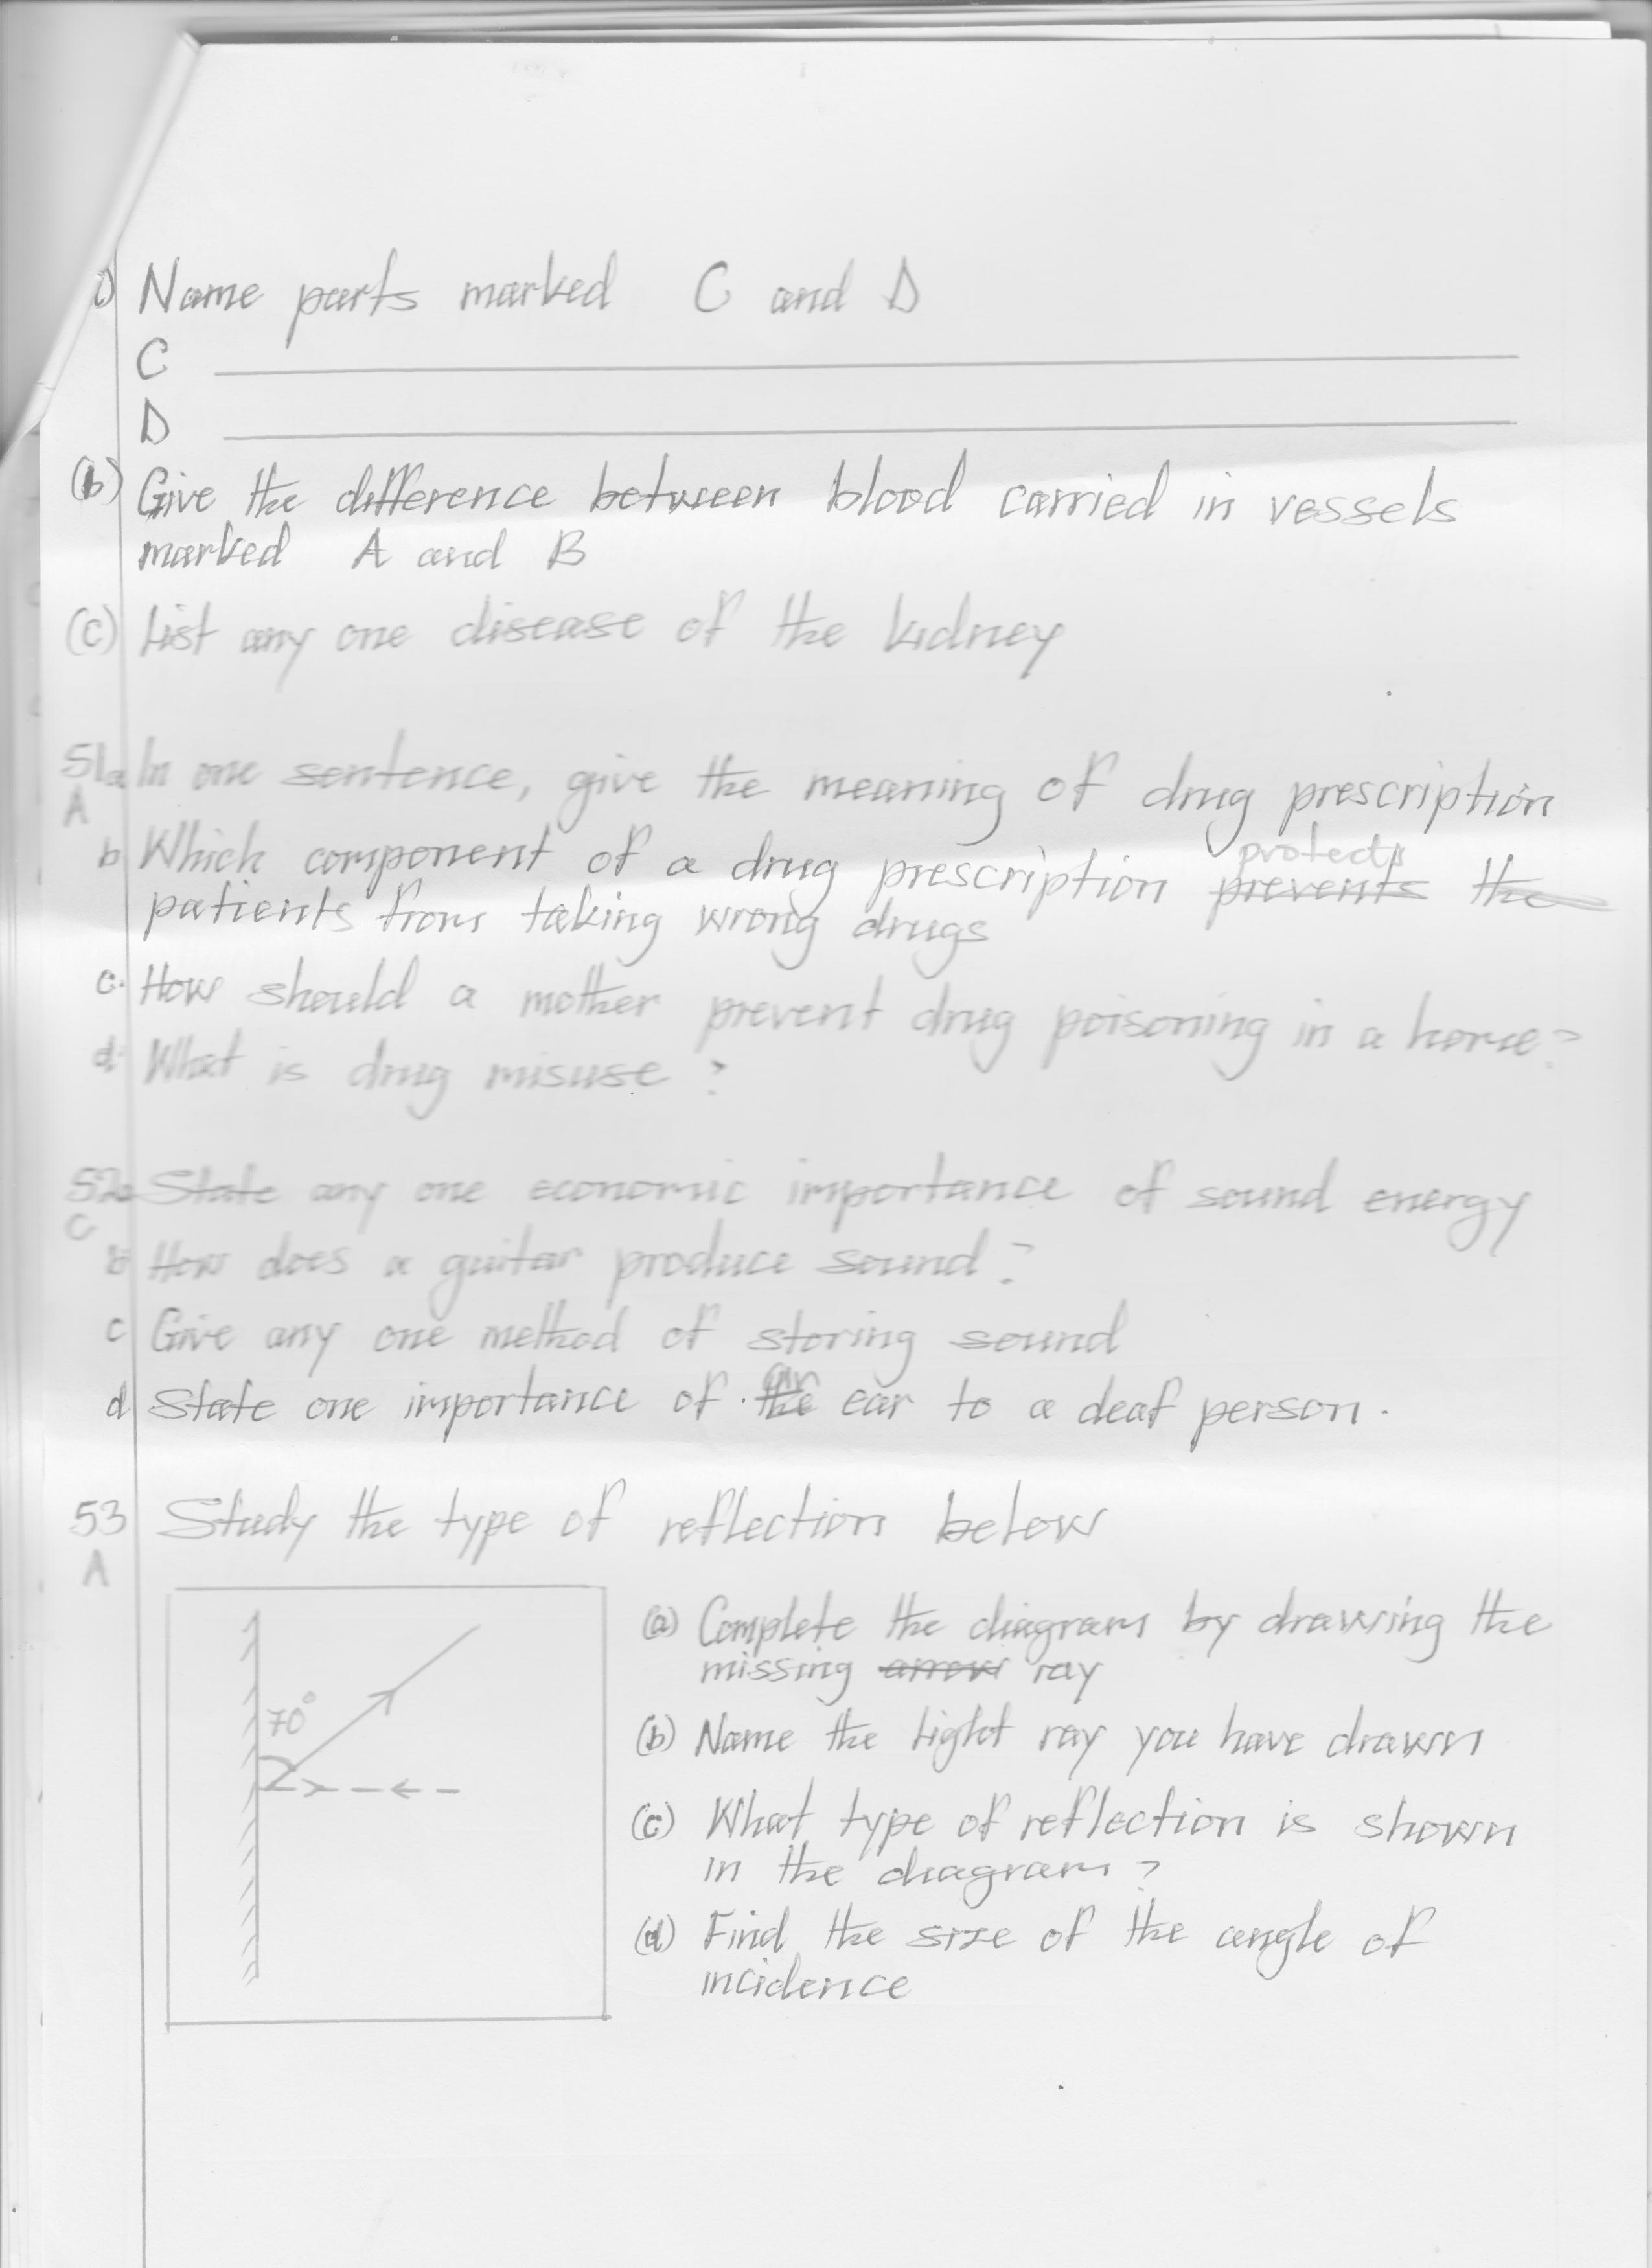 Name parts marked C and D
C
D
(b) Give the difference between blood carried in vessels
marked A and B
(c) List any one disease of the kidney
51a In one sentence, give the meaning of drug prescription
A
b Which component of a drug prescription protects
patients from taking wrong drugs
c. How should a mother prevent drug poisoning in a home?
d. What is drug misuse?
52a State any one economic importance of sound energy
C
b How does a guitar produce sound?
c Give any one method of storing sound
d State one importance of an ear to a deaf person.
53 Study the type of reflection below
A
70°
(a) Complete the diagram by drawing the
missing ray
(b) Name the light ray you have drawn
(c) What type of reflection is shown
in the diagram?
(d) Find the size of the angle of
incidence